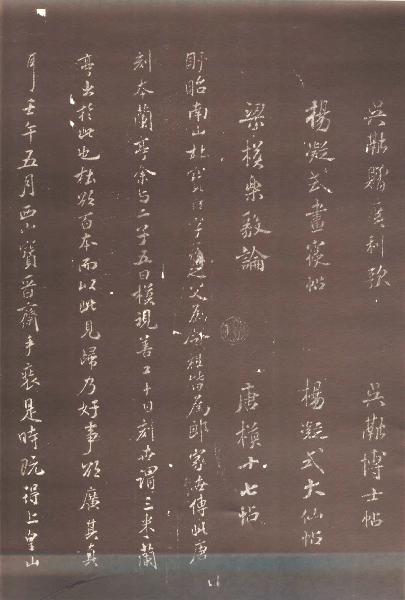 吳融贈廣利歌 吳融博士帖
楊凝式晝寢帖 楊凝式大仙帖
梁模樂毅論 唐模十七帖
盱眙南山杜寶臣字之父為祖皆為郎家傳此唐
刻本蘭亭余與二子五日模視善工十日刻世謂三米蘭
亭出於此也杜欲百本而以此見歸乃好事欲廣其真
耳壬午五月西山寶晉齋手裝是時晥得上皇山